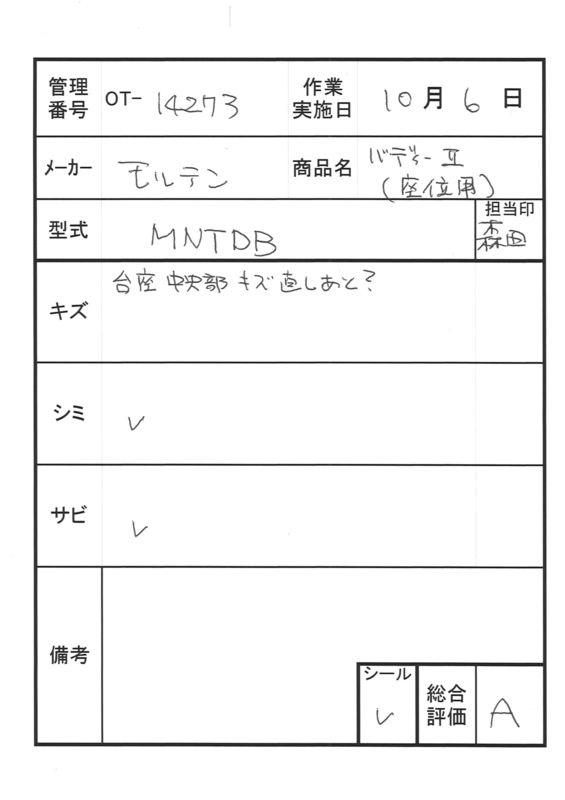 管理番号 OT- 14273 作業実施日 10月6日
メーカー モルテン 商品名 バディーⅡ
(座位用)
型式 MNTDB 担当印
森田
キズ 台座 中央部 キズ直しあと?
シミ ✓
サビ ✓
備考
シール ✓ 総合評価 A